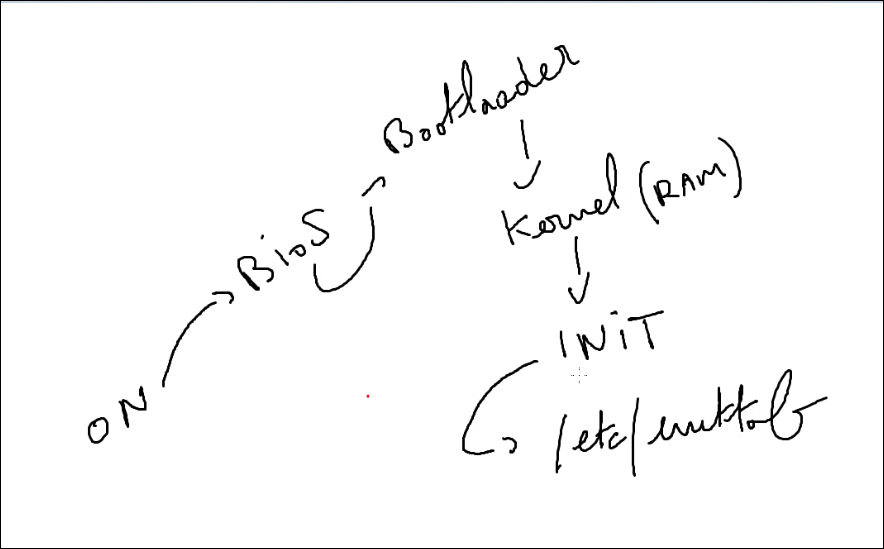 ON
BioS
Bootloader
Kernel (RAM)
INiT
/etc/inittab